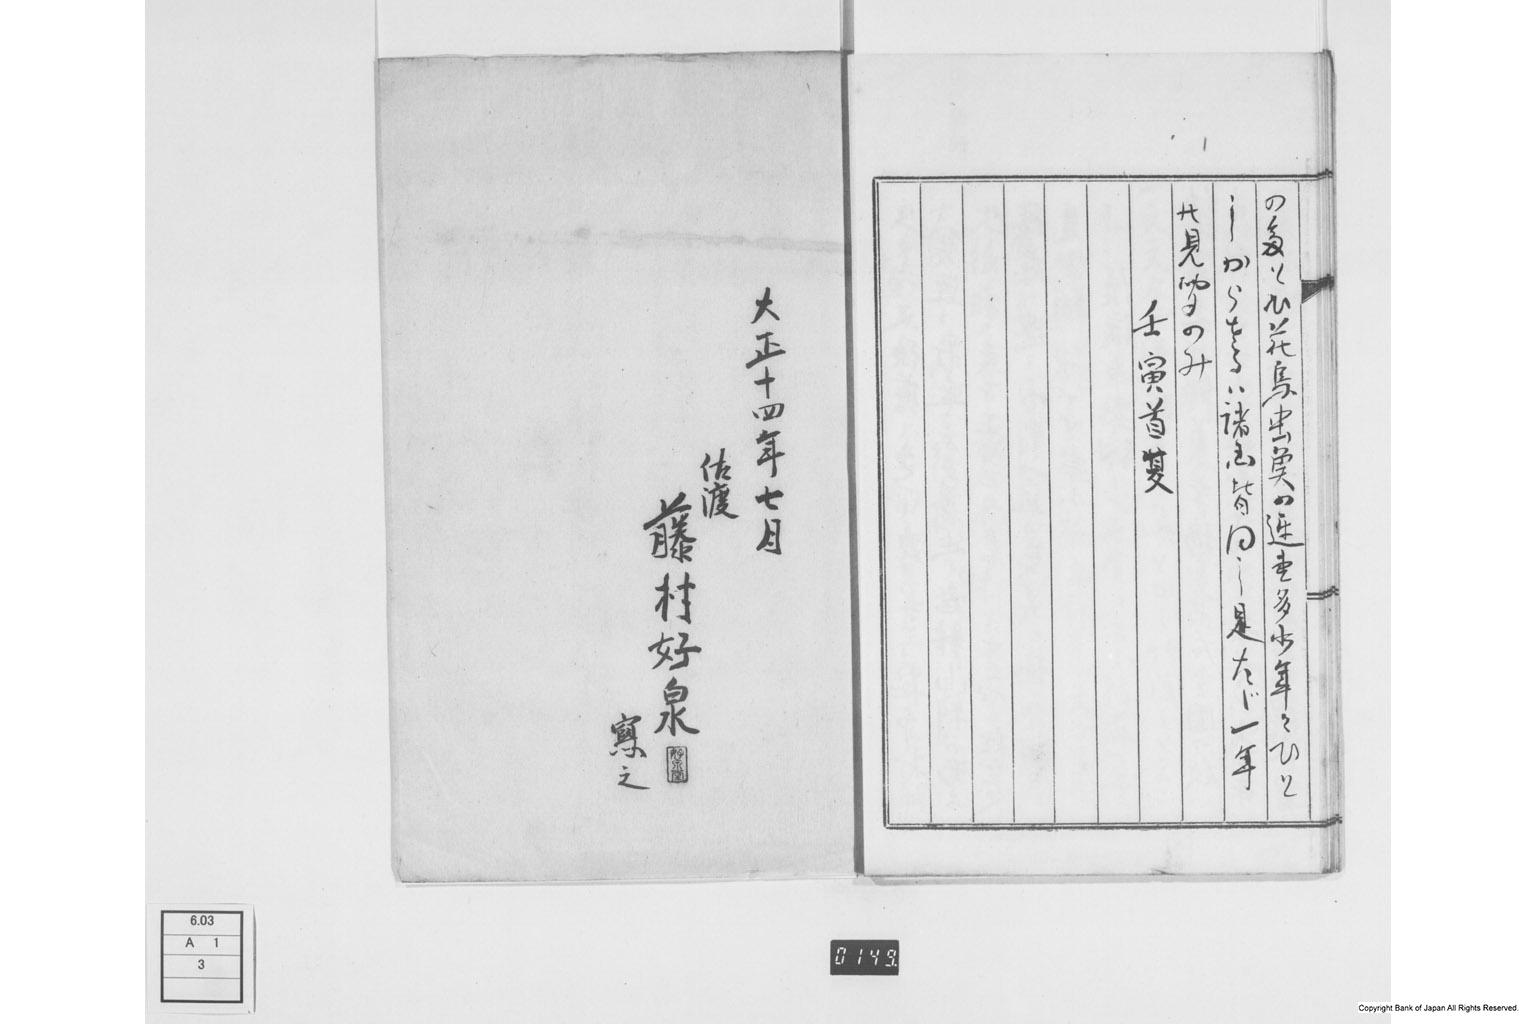 の多くひ花鳥虫魚の遅速多少年々ひと
しからざるハ諸色皆同じ是たゞ一年
の見聞のみ
壬寅首夏
大正十四年七月
佐渡
藤村好泉
寫之
6.03
A 1
3
0149
Copyright Bank of Japan All Rights Reserved.